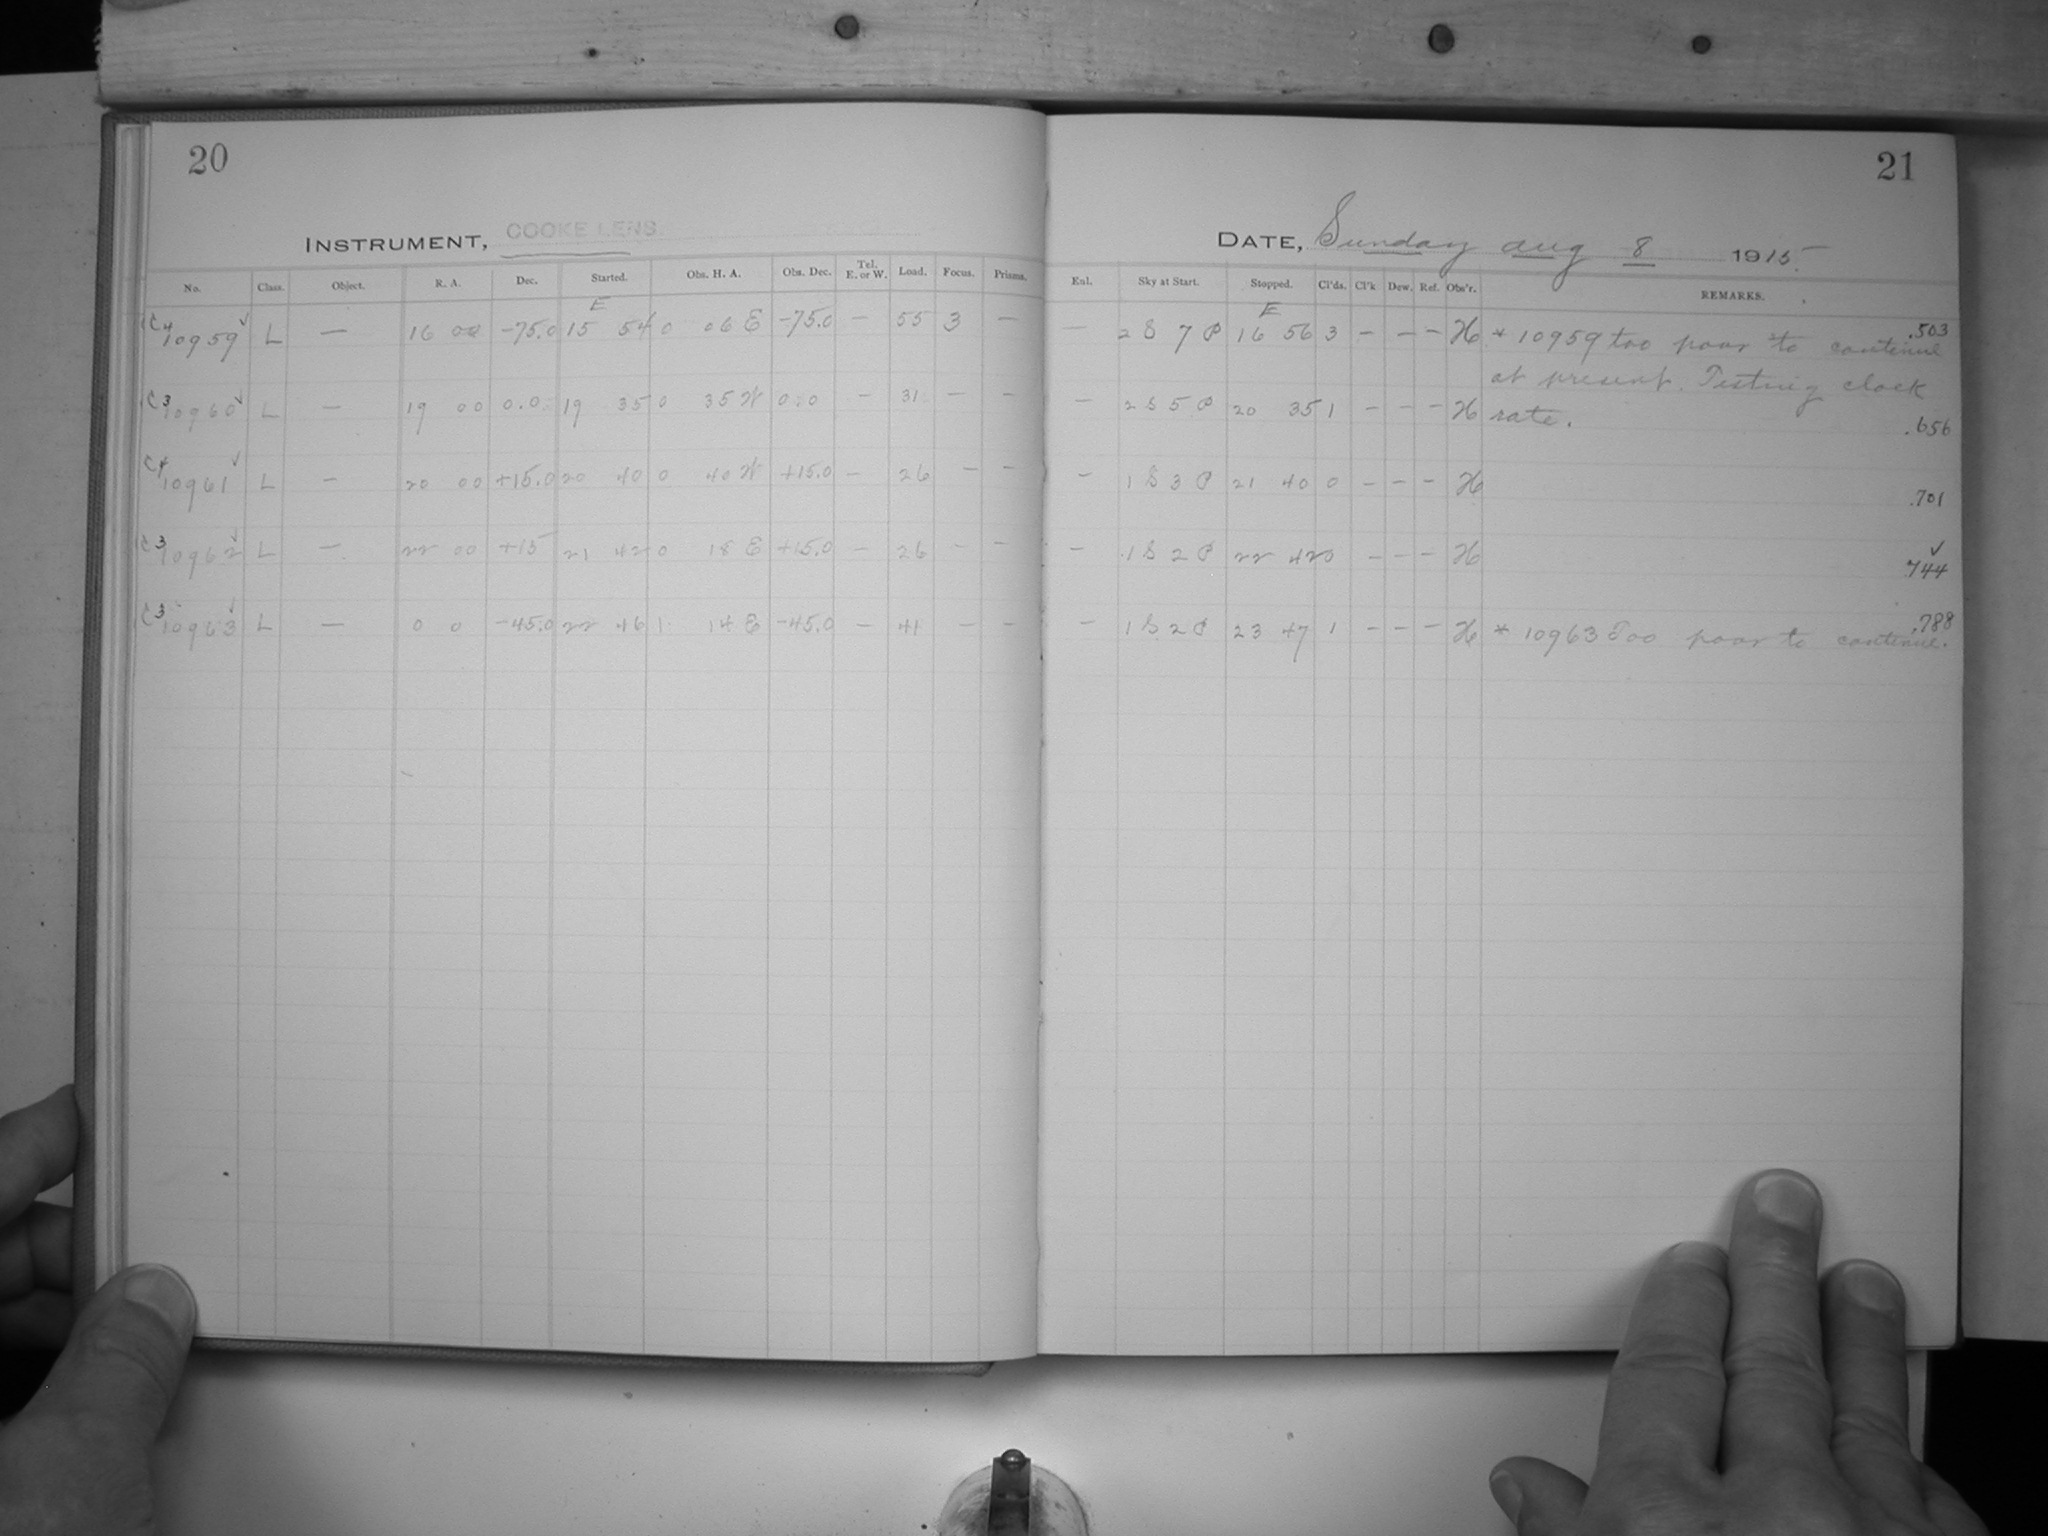 20
21
INSTRUMENT, COOKE LENS
DATE, Sunday Aug 8 1915.
No. Class. Object. R. A. Dec. Started. Obs. H. A. Obs. Dec. Tel. E. or W. Load. Focus. Prisms. Enl. Sky at Start. Stopped. Cl'ds. Cl'k Dew. Ref. Obs'r. REMARKS.
E E
C4 10959 ✓ L — 16 00 -75.0 15 54 0 06 E -75.0 — 55 3 — — 2 S 7 P 16 56 3 — — — H * 10959 too poor to continue .503
at present. Testing clock
C3 10960 ✓ L — 19 00 0.0 19 35 0 35 W 0.0 — 31 — — — 2 S 5 P 20 35 1 — — — H rate. .656
C4 10961 ✓ L — 20 00 +15.0 20 40 0 40 W +15.0 — 26 — — — 1 S 3 P 21 40 0 — — — H .701
C3 10962 ✓ L — 22 00 +15 21 42 0 18 E +15.0 — 26 — — — 1 S 2 P 22 42 0 — — — H ✓ .744
C3 10963 ✓ L — 0 0 -45.0 22 46 1 14 E -45.0 — 41 — — — 1 S 2 P 23 47 1 — — — H * 10963 Too poor to continue. .788